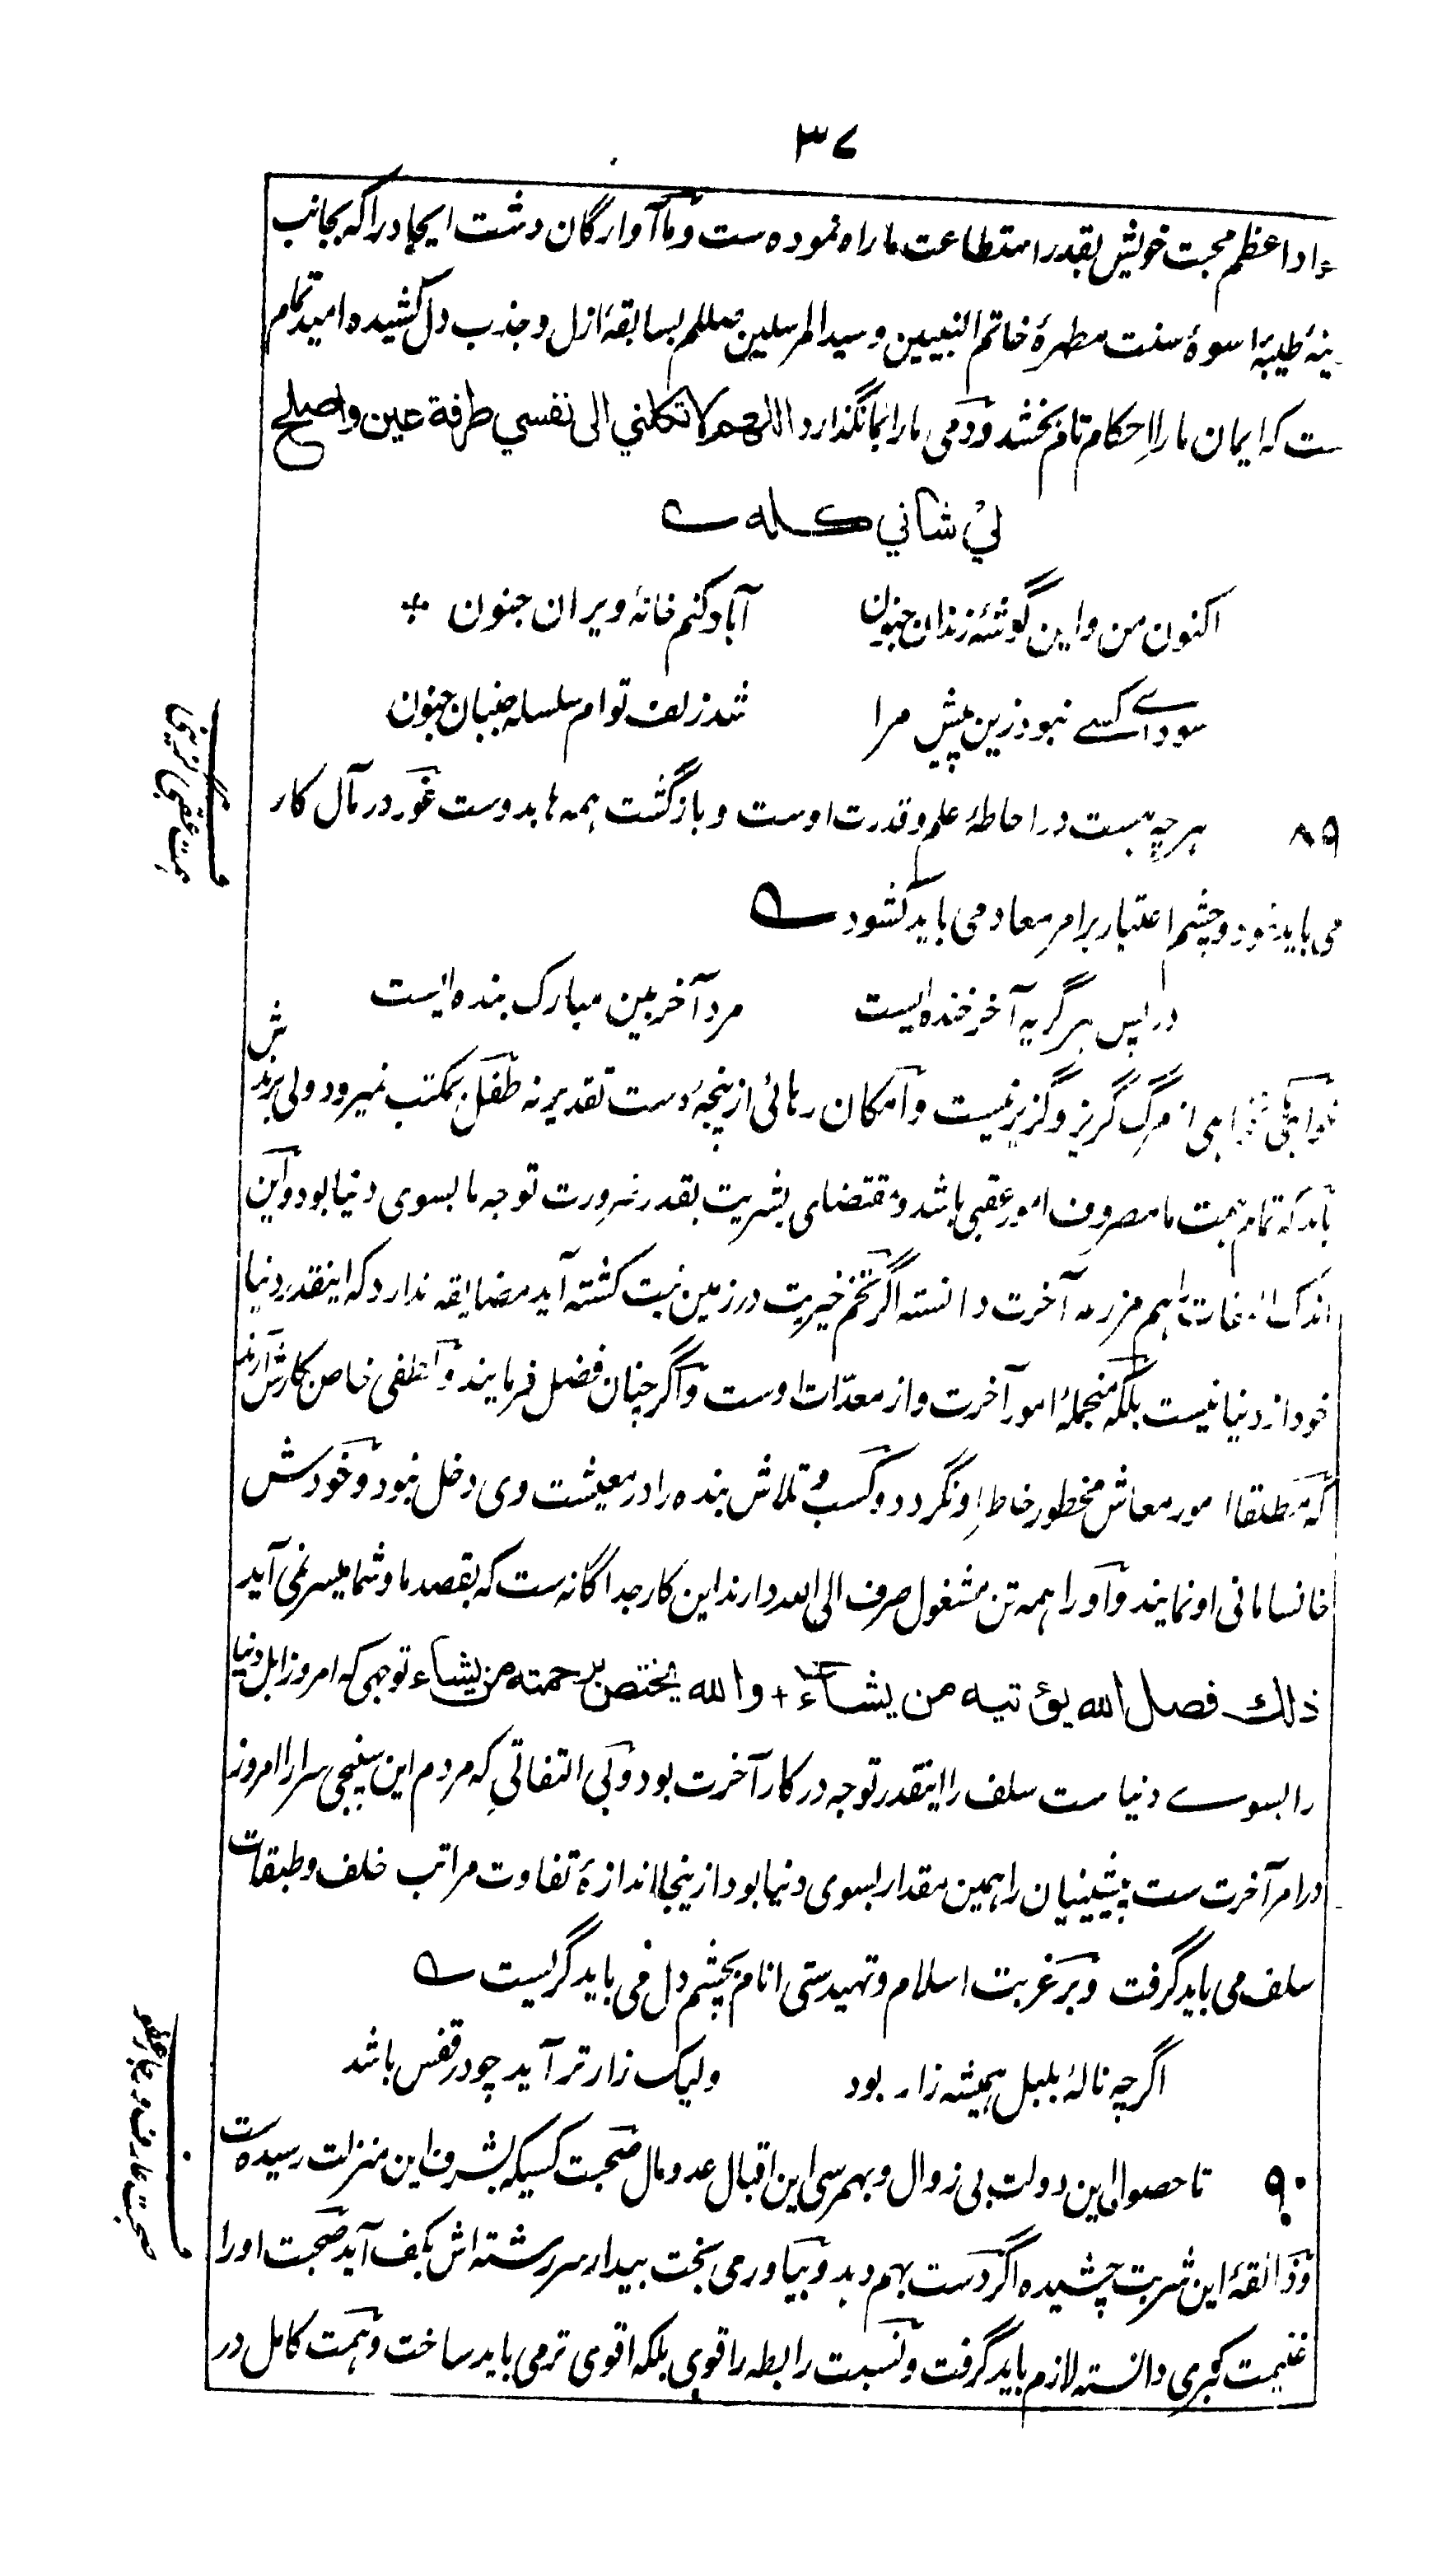 ۳۷
اد اعظم محبت خویش بقدر استطاعت ما راه نموده ست و ما آوارگان دشت ایجاد را که بجانب
ینهٔ طیبهٔ اسوهٔ سنت مطهرهٔ خاتم النبیین و سید المرسلین صللم بسابقهٔ ازل و جذب دل کشیده امید تمام
ست که ایمان ما را احکام تام بخشد و دمی ما را بما نگذارد اللهم لا تكلني الى نفسي طرفة عين واصلح
لي شاني كله
اکنون من و این گوشهٔ زندان جنون آباد کنم خانهٔ ویران جنون
سودای کسے نبود زین پیش مرا شد زلف توام سلسله جنبان جنون
۸۹ هرچه هست در احاطهٔ علم و قدرت اوست و بازگشت همه ها بدوست غور در مآل کار
می باید نمود و چشم اعتبار بر امر معاد می باید کشود
در پس هر گریه آخر خنده ایست مرد آخر بین مبارک بنده ایست
خواهی نخواهی از مرگ گریز و گزیر نیست و امکان رهائی از پنجهٔ دست تقدیر نه طفل بمکتب نمیرود ولی برندش
باید که تمام همت ما مصروف امور عقبی باشد و مقتضای بشریت بقدر ضرورت توجه ما بسوی دنیا بود و این
اندک التفات را هم مزرعه آخرت دانسته اگر تخم خیریت در زمین نیت کشته آید مضایقه ندارد که اینقدر دنیا
خود از دنیا نیست بلکه منجملهٔ امور آخرت و از معدّات اوست و اگر چنان فضل فرمایند و لطفی خاص بکارش آرند
که مطلقا امور معاش مخطور خاطر او نگردد و کسب و تلاش بنده را در معیشت وی دخل نبود و خودش
خانسامانی او نمایند و او را همه تن مشغول صرف الی الله دارند این کار جداگانه ست که بقصد ما و شما میسر نمی آید
ذلك فضل الله يؤتيه من يشاء + والله يختص برحمته من يشاء توجهی که امروز اهل دنیا
را بسوے دنیا ست سلف را اینقدر توجه در کار آخرت بود و بی التفاتی که مردم این سپنجی سرا را امروز
در امر آخرت ست پیشینیان را همین مقدار بسوی دنیا بود ازینجا اندازهٔ تفاوت مراتب خلف و طبقات
سلف می باید گرفت و بر غربت اسلام و تهیدستی انام بچشم دل می باید گریست
اگرچه نالهٔ بلبل همیشه زار بود ولیک زارتر آید چو در قفس باشد
۹۰ تا حصول این دولت بی زوال و بهمرسی این اقبال عدو مال صحبت کسیکه بشرف این منزلت رسیده ست
و ذائقهٔ این شربت چشیده اگر دست بهم دهد و بیاوری بخت بیدار سررشته اش بکف آید صحبت او را
غنیمت کبری دانسته لازم باید گرفت و نسبت رابطه را قوی بلکه اقوی تر می باید ساخت و همت کامل در